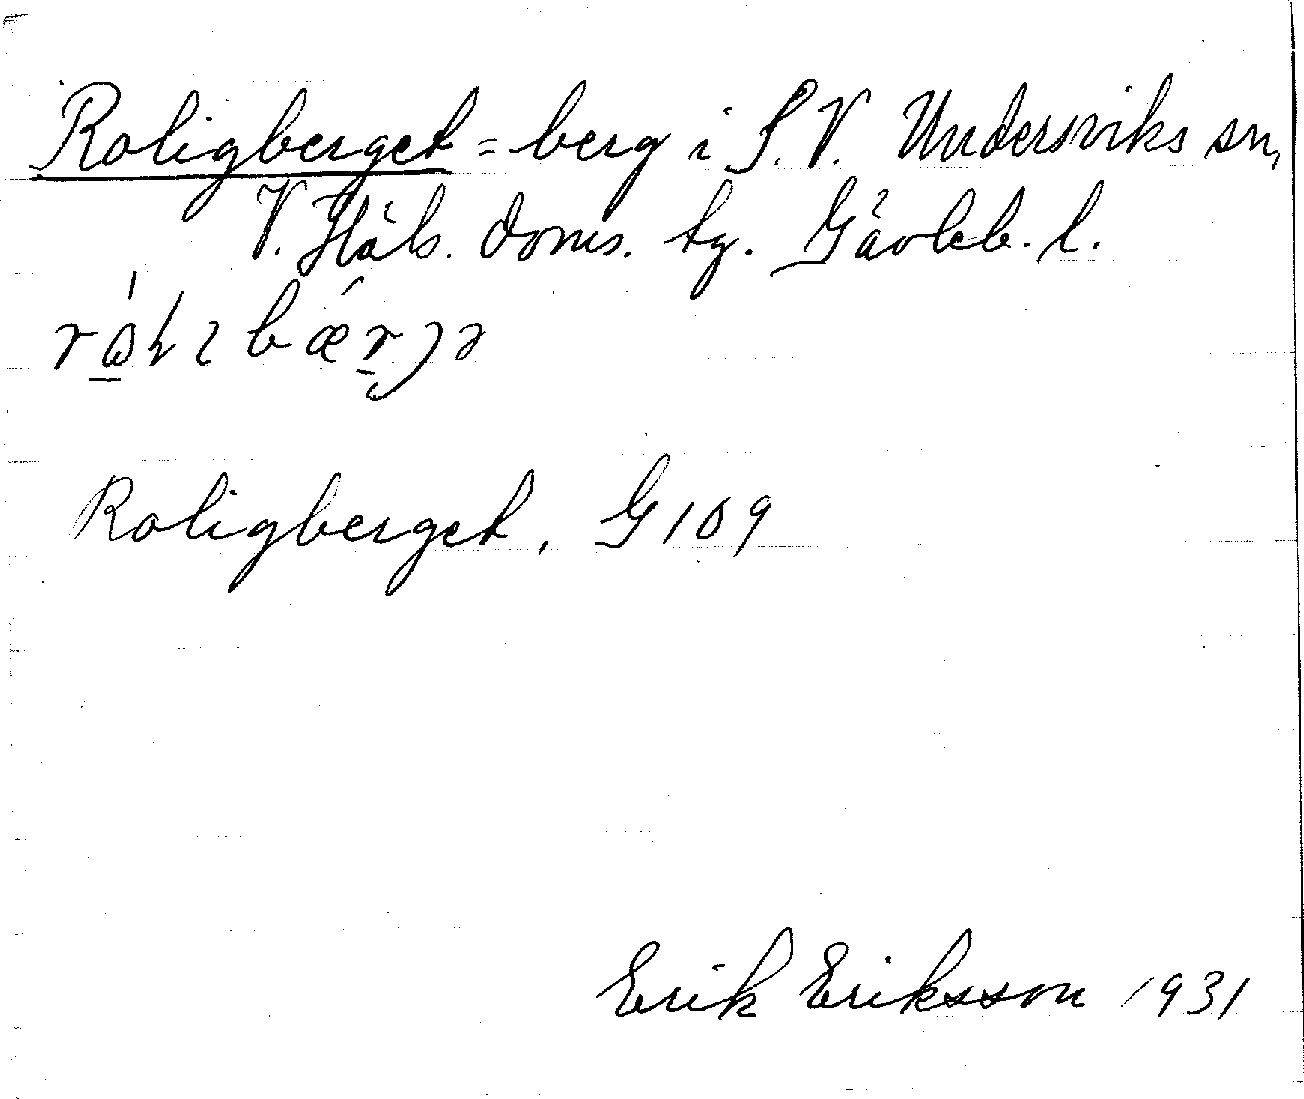 Roligberget = berg i S.V. Undersviks sn,
V. Häls. doms. tg. Gävleb. l.
Roligberget, G 109
Erik Eriksson 1931